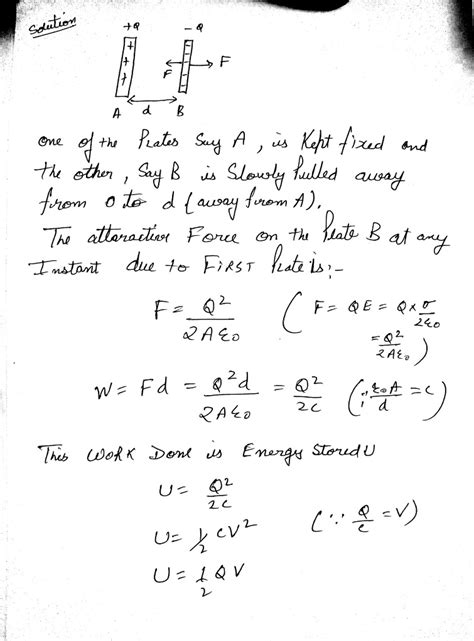 Solution
+Q -Q
+
+
+
F F
A d B
one of the Plates Say A, is Kept fixed and
the other, Say B is Slowly Pulled away
from 0 to d (away from A).
The attaractive Force on the Plate B at any
Instant due to FIRST Plate is:-
F = Q²/2Aε0 ( F = QE = Q×σ/2ε0
= Q²/2Aε0 )
W = Fd = Q²d/2Aε0 = Q²/2C (∵ ε0A/d = C)
This WORK Done is Energy Stored U
U = Q²/2C
U = 1/2 CV² (∵ Q/C = V)
U = 1/2 QV